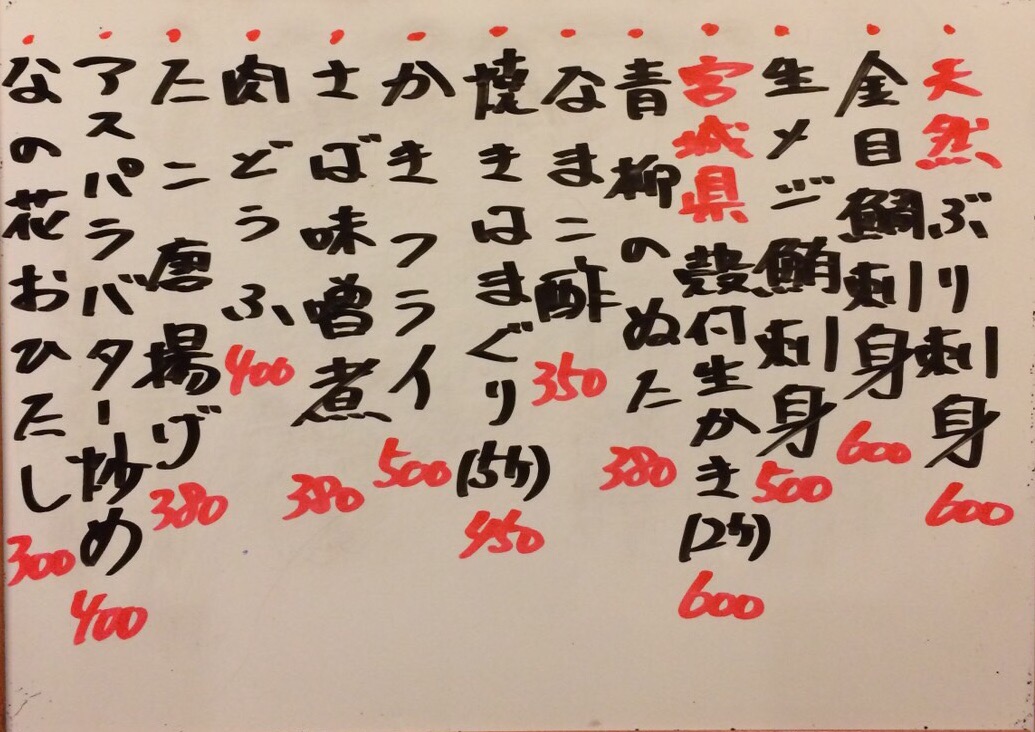 天然ぶり刺身 600
金目鯛刺身 600
生メジ鮪刺身 500
宮城県殻付生かき(2ヶ) 600
青柳のぬた 380
なまこ酢 350
焼きはまぐり(5ヶ) 450
かきフライ 500
さば味噌煮 380
肉どうふ 400
たこ唐揚げ 380
アスパラバター炒め 400
なの花おひたし 300